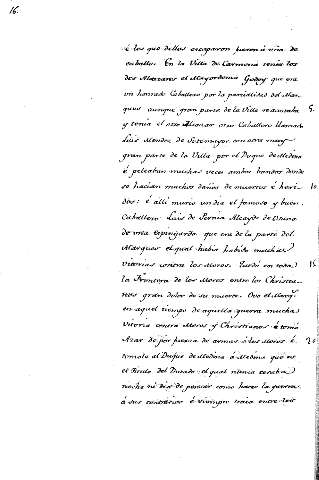 16.
é los que dellos escaparon fueron á uña de
caballo. En la Villa de Carmona tenia los
dos Alcazares el Mayordomo Godoy que era
un honrado Caballero por la parcialidad del Mar-
ques aunque gran parte de la Villa 5.
y tenia el otro Alcazar otro Caballero llamado
Luis Mendez de Sotomayor con otra muy
gran parte de la Villa por el Duque de Medina
é peleaban muchas veces ambos bandos donde
se hacian muchos daños de muertes é heri- 10
das: é alli murio un dia el famoso y buen
Caballero Luis de Pernia Alcayde de Osuna
de una espingarda que era de la parte del
Marques el qual habia habido muchas
Vitorias contra los Moros. Fuedo en toda 15
la Frontera de los Moros entre los Christia-
nos gran dolor de su muerte. Ovo el Marq.
en aquel tiempo de aquella guerra mucha
Vitoria contra Moros y Christianos é tomó
por fuerza de armas á los Moros é 20
tomole al Duque de Medina á Medina que es
el Titulo del Ducado: el qual nunca cesaba
noche ni dia de pensar como hacer la guerra
á sus contrarios é siempre traia entre los